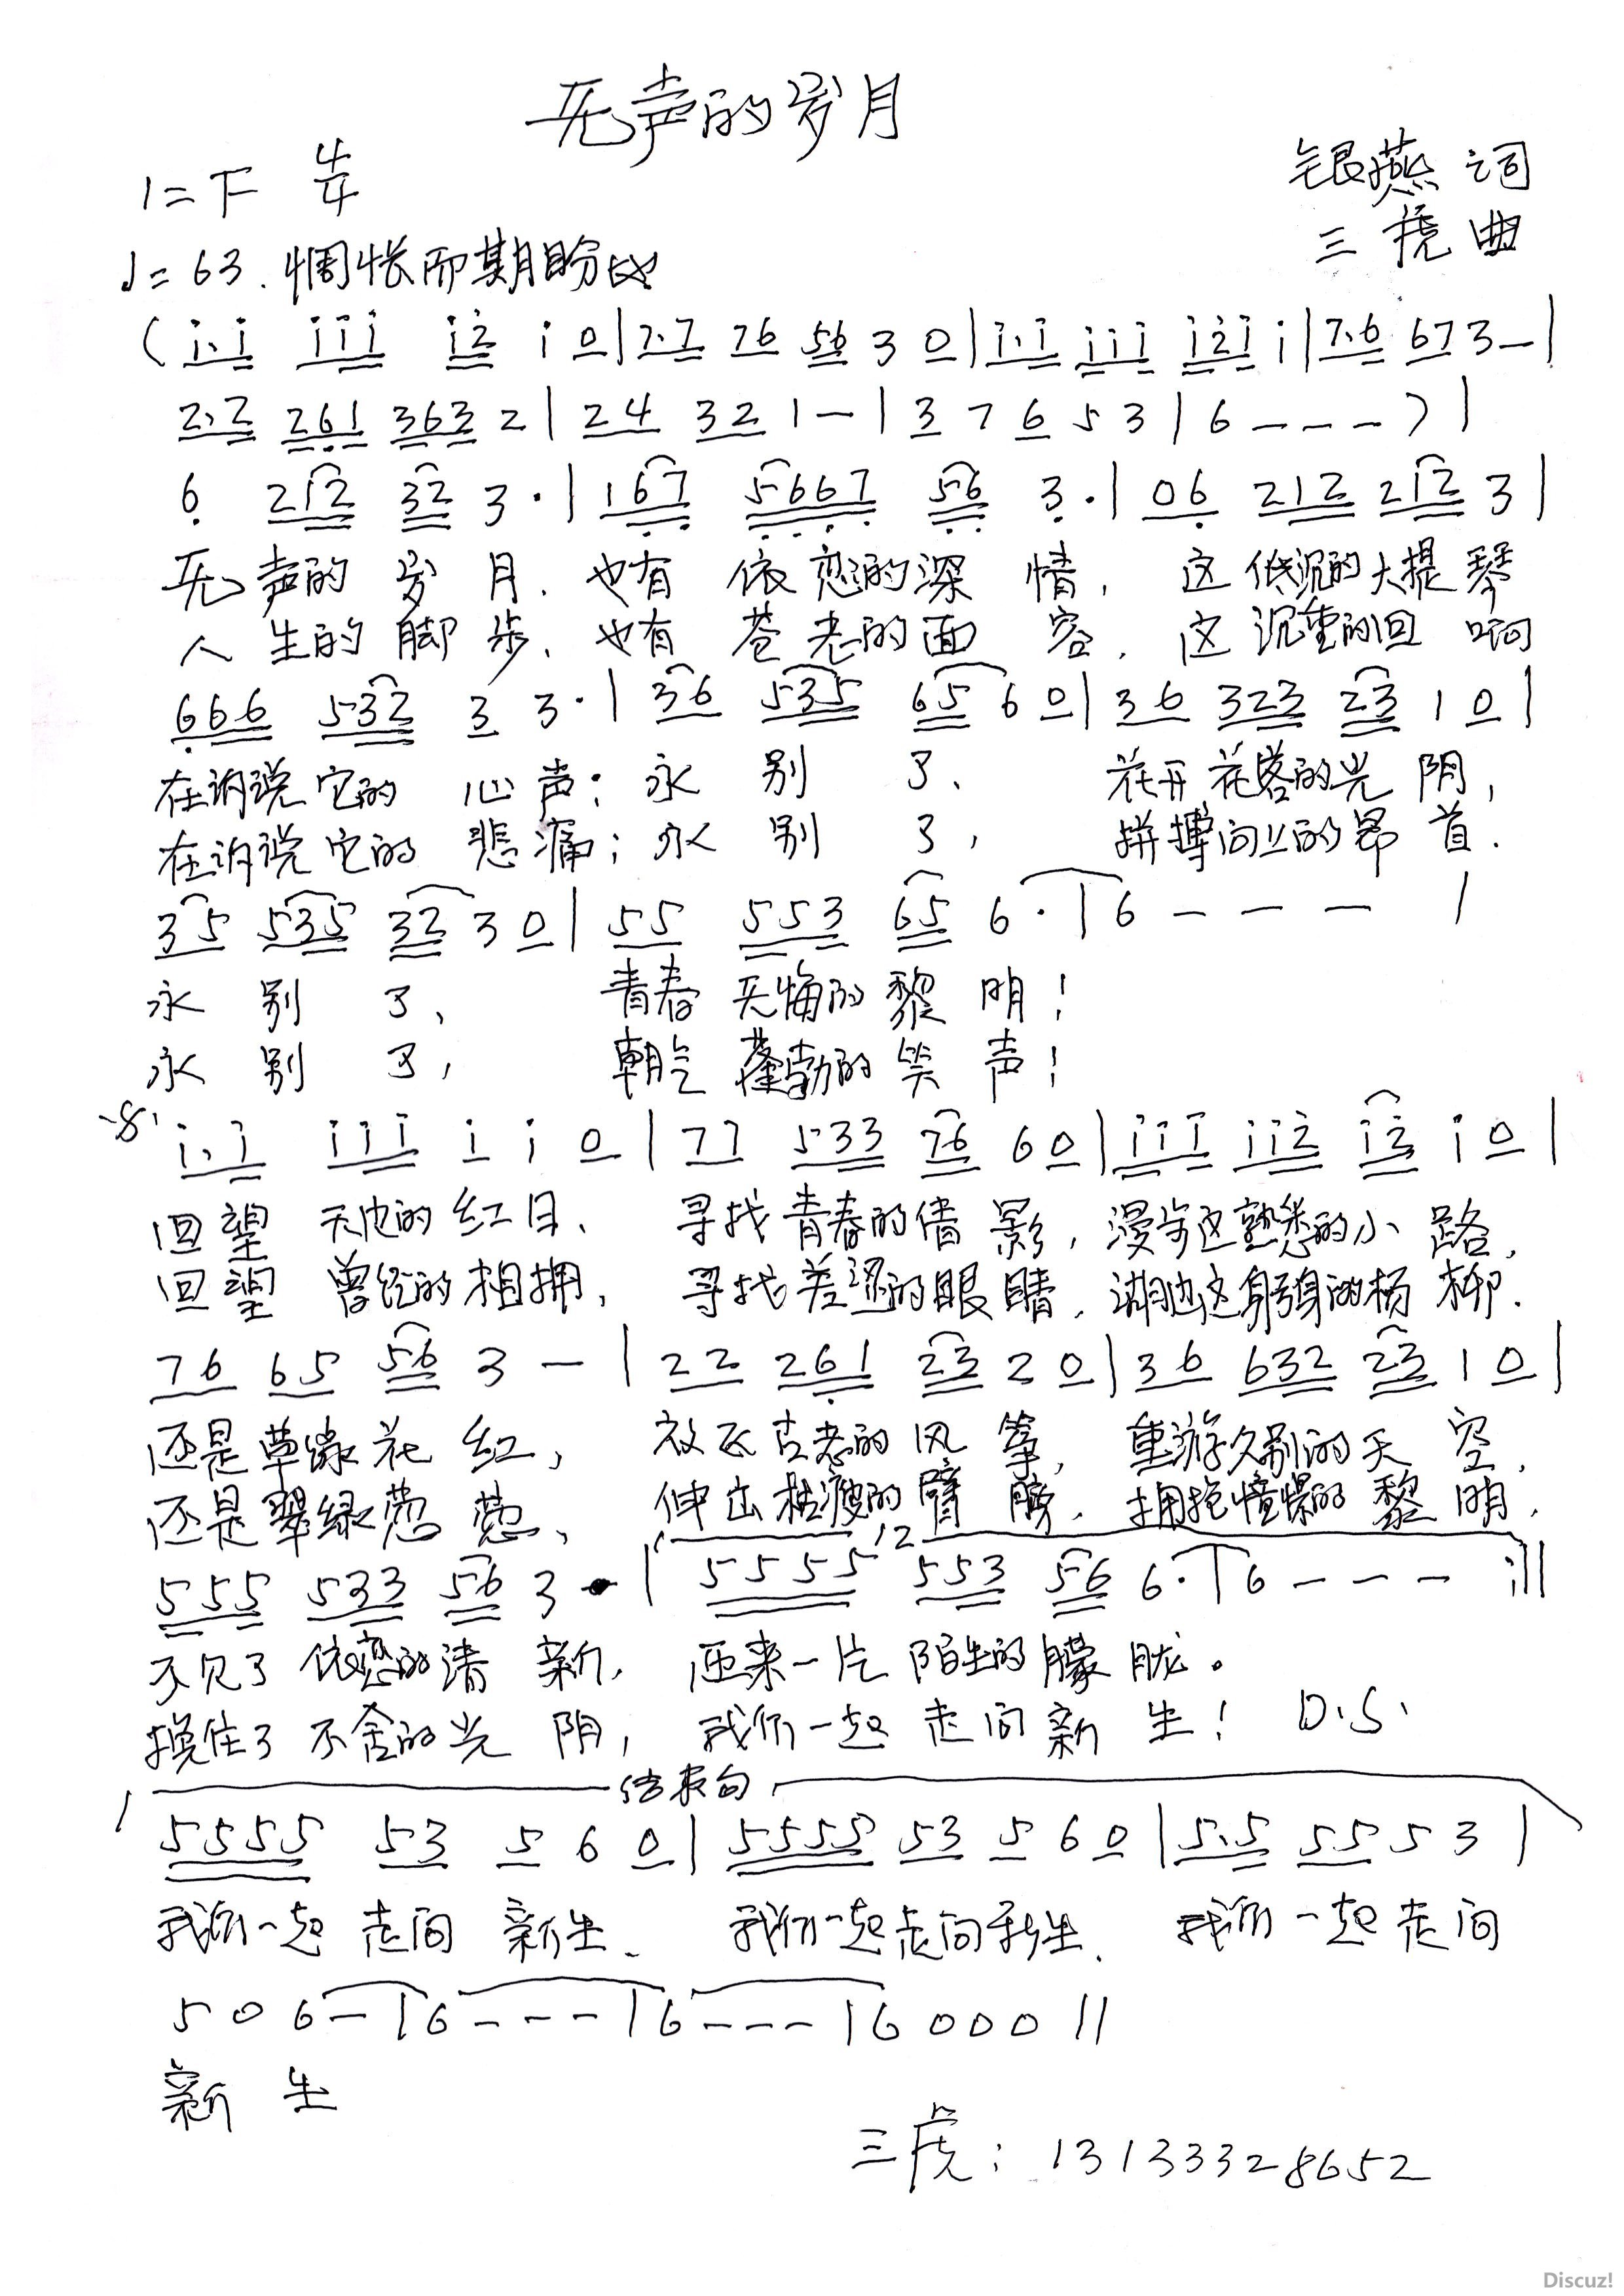 无声的岁月
1=F 4/4
银燕 词
三虎 曲
♩=63. 惆怅而期盼地
(i.i iii i2 i 0|7.7 76 56 3 0|i.i iii i2i i|7.6 67 3-|
2.2 261 363 2|24 32 1-|3 7 6 5 3|6---)|
6 212 32 3·|167 5667 56 3·|06 212 212 3|
无声的岁月、也有依恋的深情,这低沉的大提琴
人生的脚步、也有苍老的面容,这沉重的回响
666 532 3 3·|36 535 65 6 0|36 323 23 1 0|
在诉说它的心声:永别了、花开花落的光阴,
在诉说它的悲痛;永别了,拼搏向上的昂首.
35 535 32 3 0|55 553 65 6·|6---|
永别了、青春无悔的黎明!
永别了,朝气蓬勃的笑声!
i.i iii i i 0|77 533 76 60|iii ii2 i2 i 0|
回望天边的红日、寻找青春的倩影,漫步这熟悉的小路,
回望曾经的相拥,寻找羞涩的眼睛,湖边这躬身的杨柳.
76 65 56 3-|22 261 23 2 0|36 632 23 1 0|
还是草绿花红,放飞古老的风筝,重游久别的天空,
还是翠绿葱葱、伸出枯瘦的臂膀,拥抱憧憬的黎明,
12
555 533 56 3·|5555 553 56 6·|6---:||
不见了依恋的清新,迎来一片陌生的朦胧。
挽住了不舍的光阴,我们一起走向新生! D.S.
结束句
5555 53 5 6 0|5555 53 5 6 0|5.5 55 5 3|
我们一起走向新生、我们一起走向新生、我们一起走向
5 0 6-|6---|6---|6 0 0 0||
新生
三虎:13133328652
Discuz!